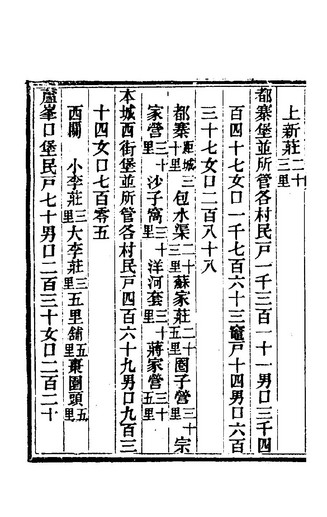 上新莊二十三里
都寨堡並所管各村民戶一千三百一十一男口三千四
百四十七女口一千七百六十三竈戶十四男口六百
三十七女口二百八十八
都寨距城三十里 包水渠二十三里 蘇家莊二十五里 圈子營三十里 宗
家營三十里 沙子窩三十里 洋河套三十里 蔣家營三十五里
本城西街堡並所管各村民戶四百六十九男口九百三
十四女口七百零五
西關 小李莊三里 大李莊三里 五里舖五里 棗園頭五里
蘆峯口堡民戶七十男口二百三十女口二百二十